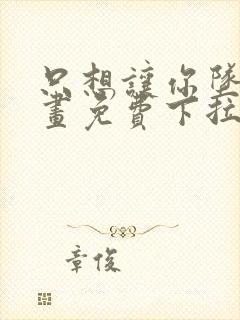 只想讓你墜
畫免費下拉
章俊